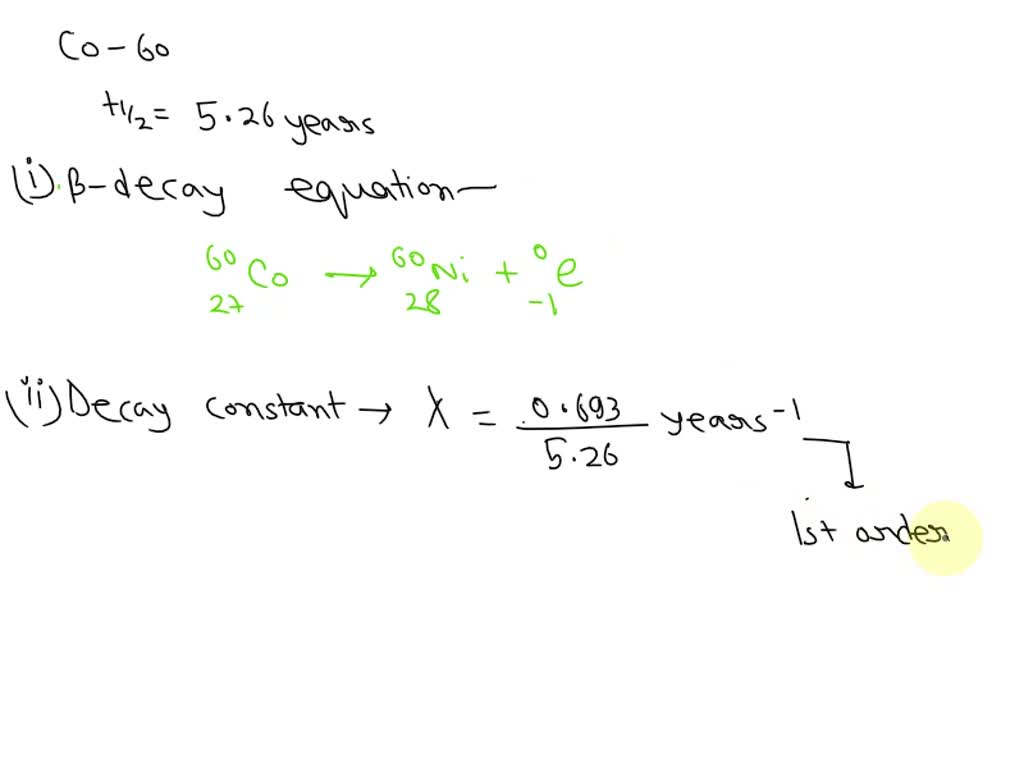 Co-60
t1/2 = 5.26 years
(i). β-decay equation—
⁶⁰₂₇Co → ⁶⁰₂₈Ni + ⁰₋₁e
(ii) Decay constant → λ = 0.693/5.26 years⁻¹
1st order